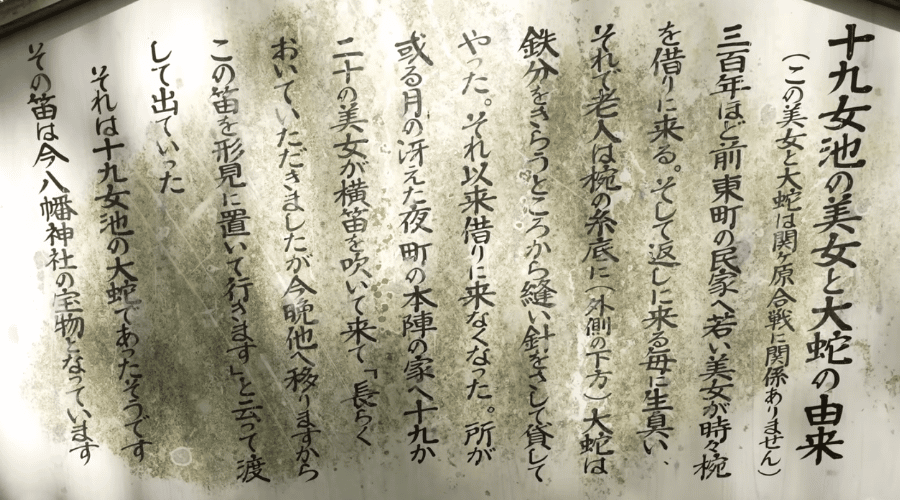 十九女池の美女と大蛇の由来
(この美女と大蛇は関ヶ原合戦に関係ありません)
三百年ほど前東町の民家へ若い美女が時々椀
を借りに来る。そして返しに来る毎に生臭い、
それで老人は椀の糸底に(外側の下方)大蛇は
鉄分をきらうところから縫い針をさして貸して
やった。それ以来借りに来なくなった。所が
或る月の冴えた夜町の本陣の家へ十九か
二十の美女が横笛を吹いて来て「長らく
おいていただきましたが今晩他へ移りますから
この笛を形見に置いて行きます」と云って渡
して出ていった
それは十九女池の大蛇であったそうです
その笛は今八幡神社の宝物となっています